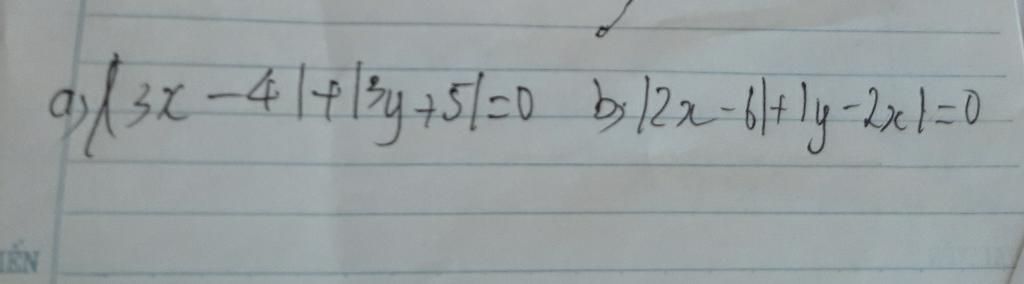 a) |3x - 4| + |3y + 5| = 0 b) |2x - 6| + |y - 2x| = 0